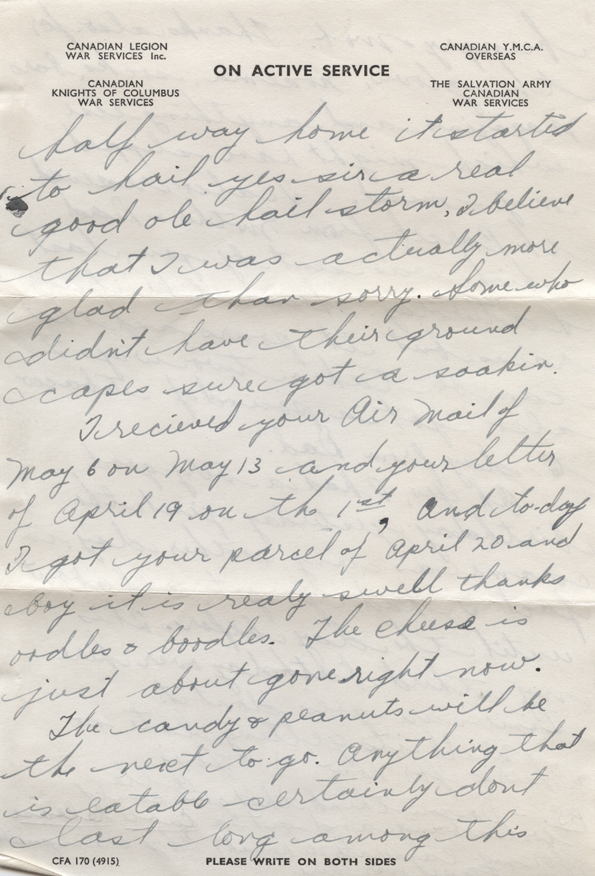 CANADIAN LEGION
WAR SERVICES Inc.
CANADIAN
KNIGHTS OF COLUMBUS
WAR SERVICES
ON ACTIVE SERVICE
CANADIAN Y.M.C.A.
OVERSEAS
THE SALVATION ARMY
CANADIAN
WAR SERVICES
half way home it started
to hail yes sir a real
good ole hail storm, I believe
that I was actually more
glad than sorry. Some who
didn't have their ground
capes sure got a soakin.
I recieved your Air Mail of
May 6 on May 13 and your letter
of April 19 on the 1st, And to-day
I got your parcel of April 20 and
boy it is realy swell thanks
oodles & boodles. The cheese is
just about gone right now.
The candy & peanuts will be
the next to go. Anything that
is eatable certainly dont
last long among this
CFA 170 (4915)
PLEASE WRITE ON BOTH SIDES